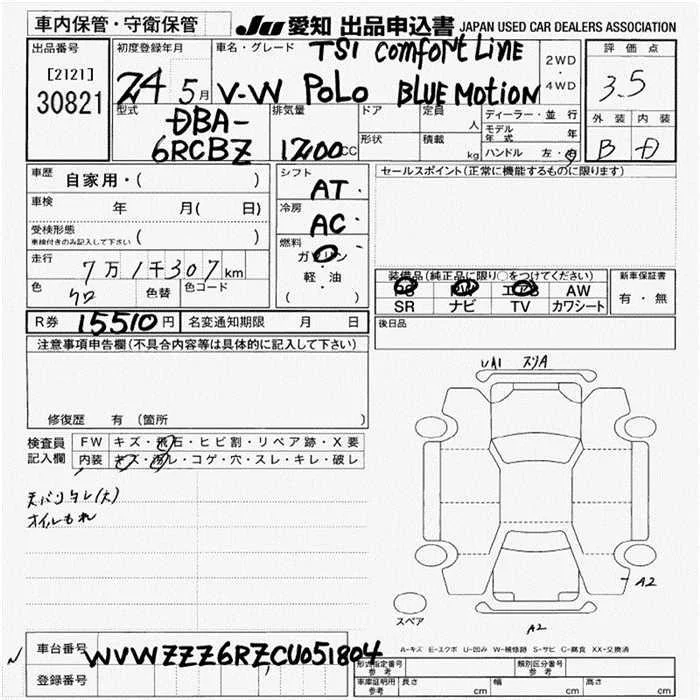 車内保管・守衛保管
JU 愛知 出品申込書 JAPAN USED CAR DEALERS ASSOCIATION
出品番号
[2121]
30821
初度登録年月
24 5月
車名・グレード
TSI comfortLine
V-W POLO BLUE MOTION
2WD
・
4WD
評価点
3.5
外装 内装
B D
型式
DBA-
6RCBZ
排気量
1200cc
ドア
形状
定員 人
積載 kg
ディーラー・並行
モデル年式 年
ハンドル 左・右
車歴 自家用・( )
車検 年 月( 日)
受検形態
車検付きのみ記入して下さい ( )
走行 7万1千307km
色 クロ 色替 色コード
シフト
AT
冷房
AC
燃料
ガソリン
・
軽・油
( )
セールスポイント(正常に機能するものに限ります)
装備品(純正品に限り○をつけてください)
PS PW エアB AW
SR ナビ TV カワシート
新車保証書
有・無
後日品
R券 15510円 名変通知期限 月 日
注意事項申告欄(不具合内容等は具体的に記入して下さい)
修復歴 有 (箇所 )
検査員
記入欄
FW キズ・飛石・ヒビ割・リペア跡・X要
内装 キズ・汚レ・コゲ・穴・スレ・キレ・破レ
天バリタレ(大)
オイルもれ
UA1 スリA
A2
A2
スペア
A-キズ E-エクボ U-凹み W-補修跡 S-サビ C-腐食 XX-交換済
車台番号
WVWZZZ6RZCU051804
登録番号
形式指定番号
参考
類別区分番号
参考
車庫証明用
参考
長さ cm 幅 cm 高さ cm